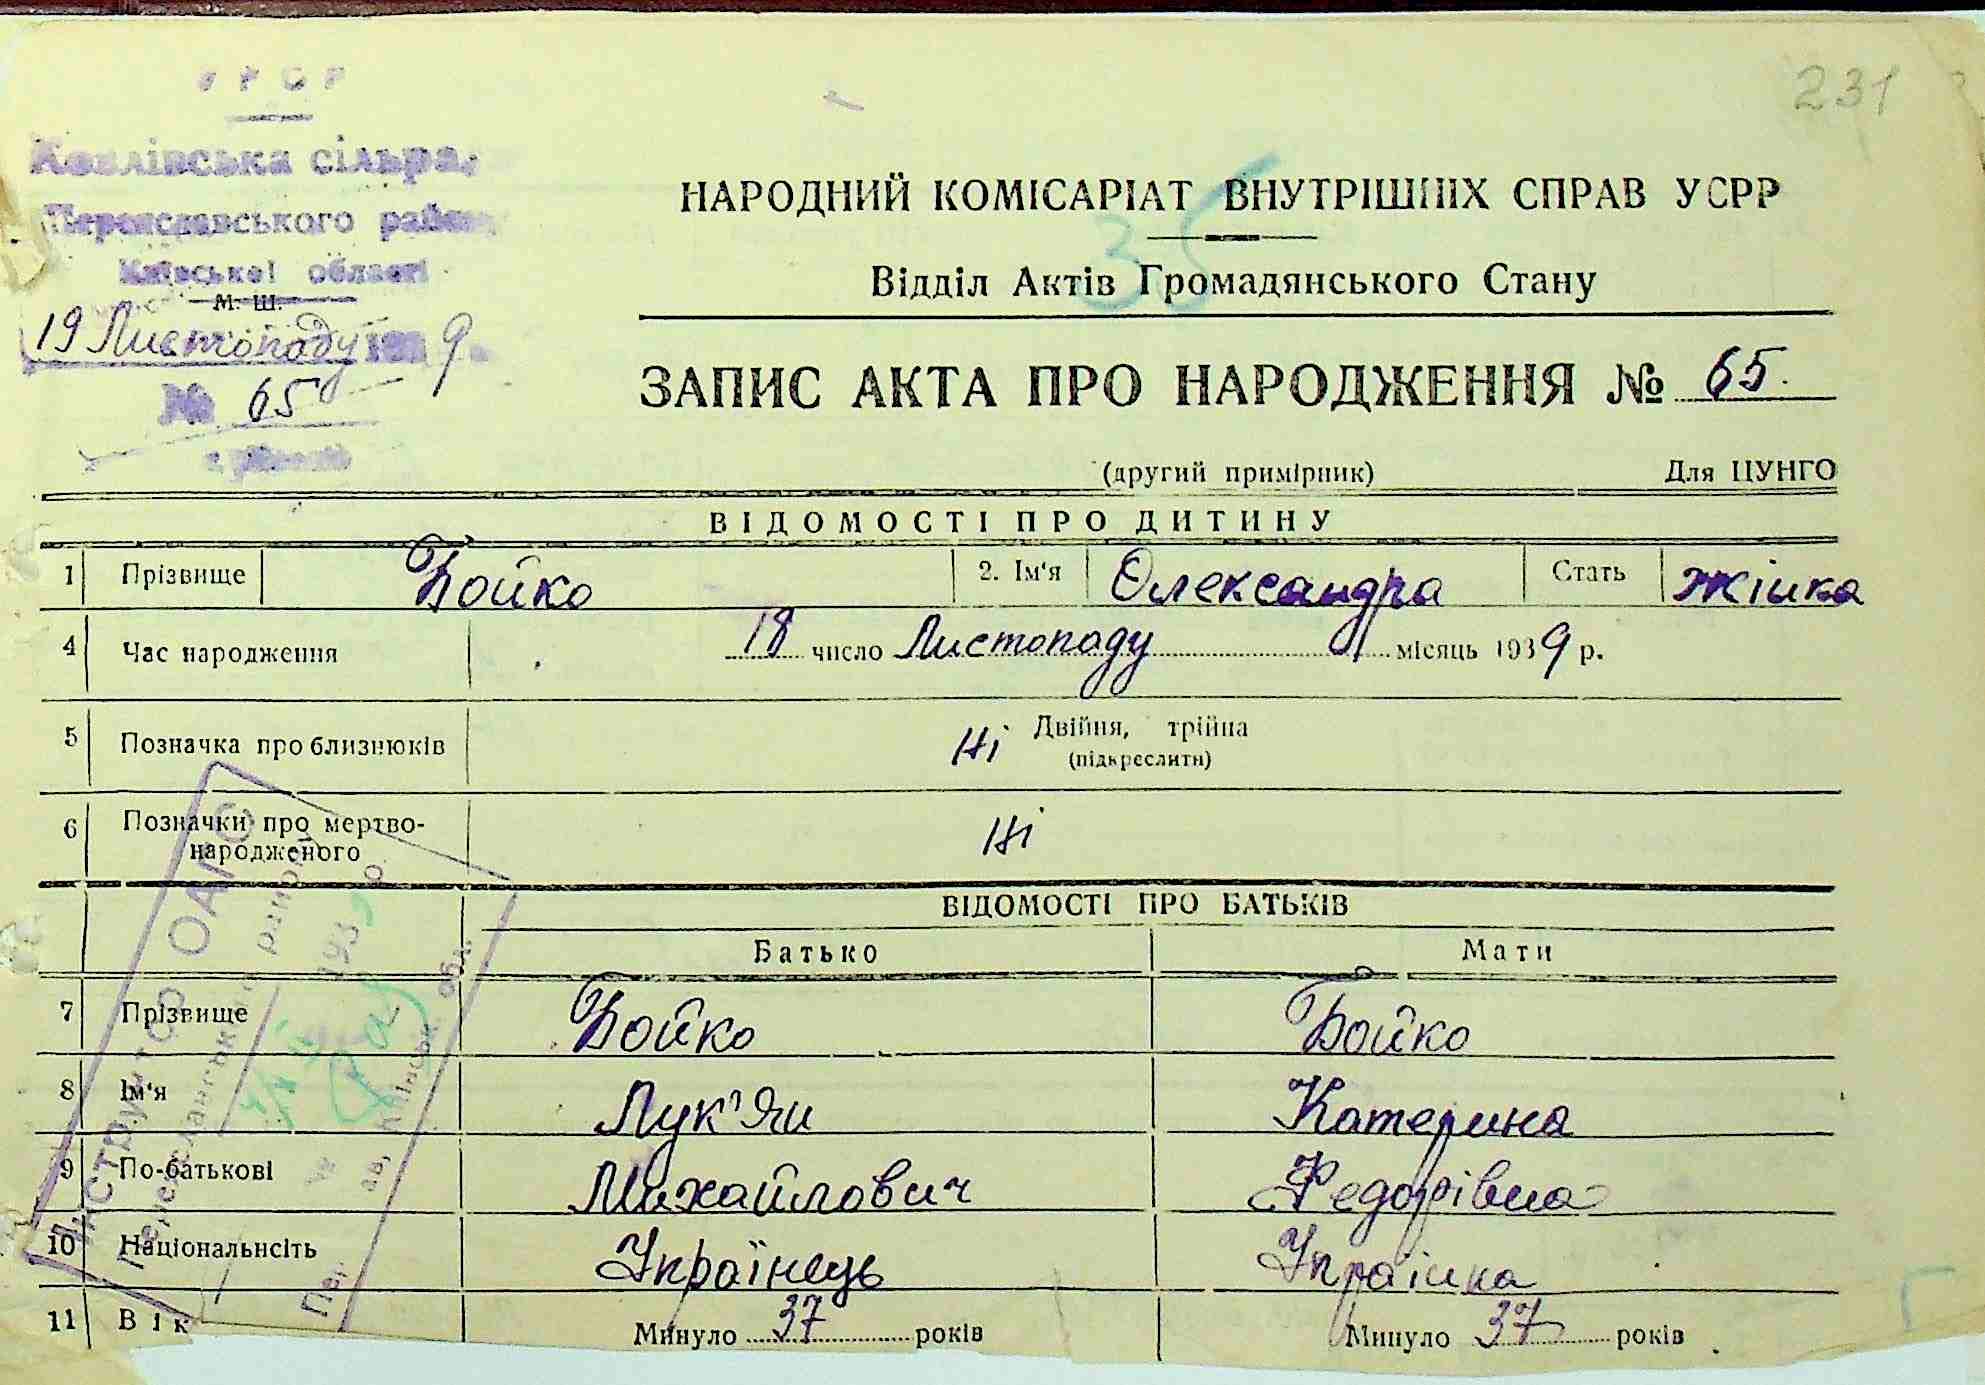 231
УРСР
Ковалівська сільрада
Переяславського району
Київської області
М. Ш.
19 Листопаду 1939
№ 65
35
НАРОДНИЙ КОМІСАРІАТ ВНУТРІШНІХ СПРАВ УСРР
Відділ Актів Громадянського Стану
ЗАПИС АКТА ПРО НАРОДЖЕННЯ № 65.
(другий примірник) Для ЦУНГО
ВІДОМОСТІ ПРО ДИТИНУ
1 Прізвище Бойко 2. Ім'я Олександра Стать жінка
4 Час народження 18 число Листопаду місяць 1939 р.
5 Позначка про близнюків Ні Двійня, трійна
(підкреслити)
6 Позначки про мертво-
народженого Ні
ВІДОМОСТІ ПРО БАТЬКІВ
Батько Мати
7 Прізвище Бойко Бойко
8 Ім'я Лук'ян Катерина
9 По-батькові Михайлович Федорівна
10 Національнсіть Українець Українка
11 Вік Минуло 37 років Минуло 37 років
Інструктор ОАГС